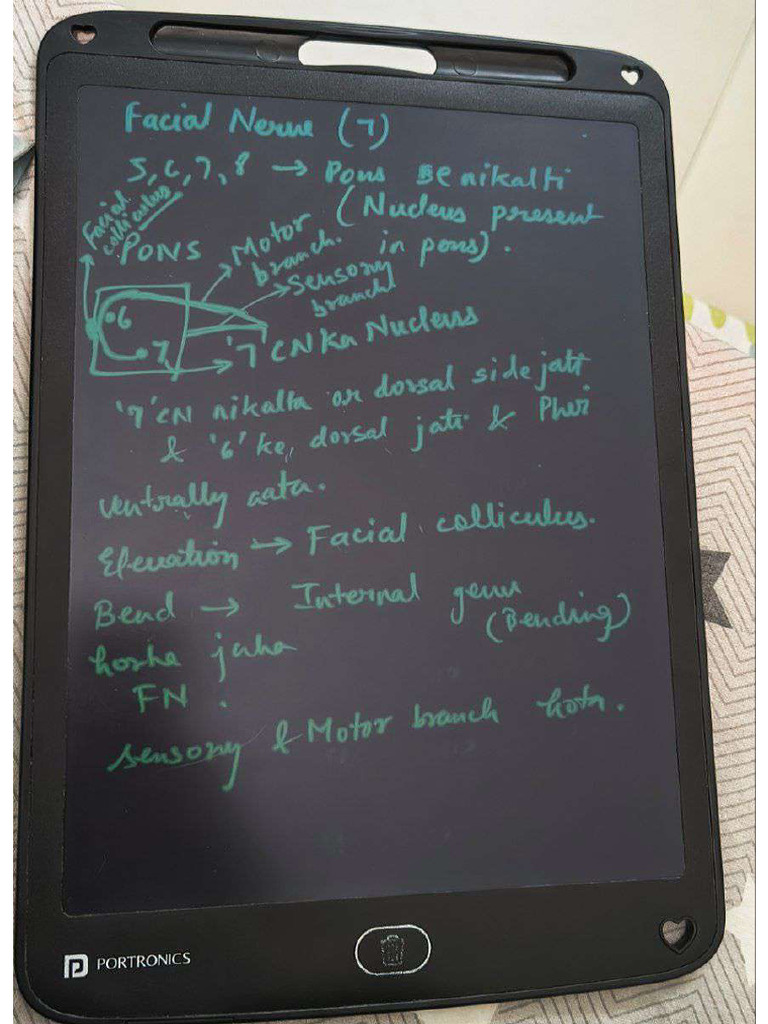 Facial Nerve (7)
5, 6, 7, 8 → Pons se nikalti
(Nucleus present
in pons).
Facial
colliculus
PONS
Motor
branch.
Sensory
branch
6
7
'7' CN ka Nucleus
'7' CN nikalta or dorsal side jati
& '6' ke, dorsal jati & Pher
ventrally aata.
Elevation → Facial colliculus.
Bend → Internal genu
(Bending)
jaha
FN.
Sensory & Motor branch hota.
PORTRONICS